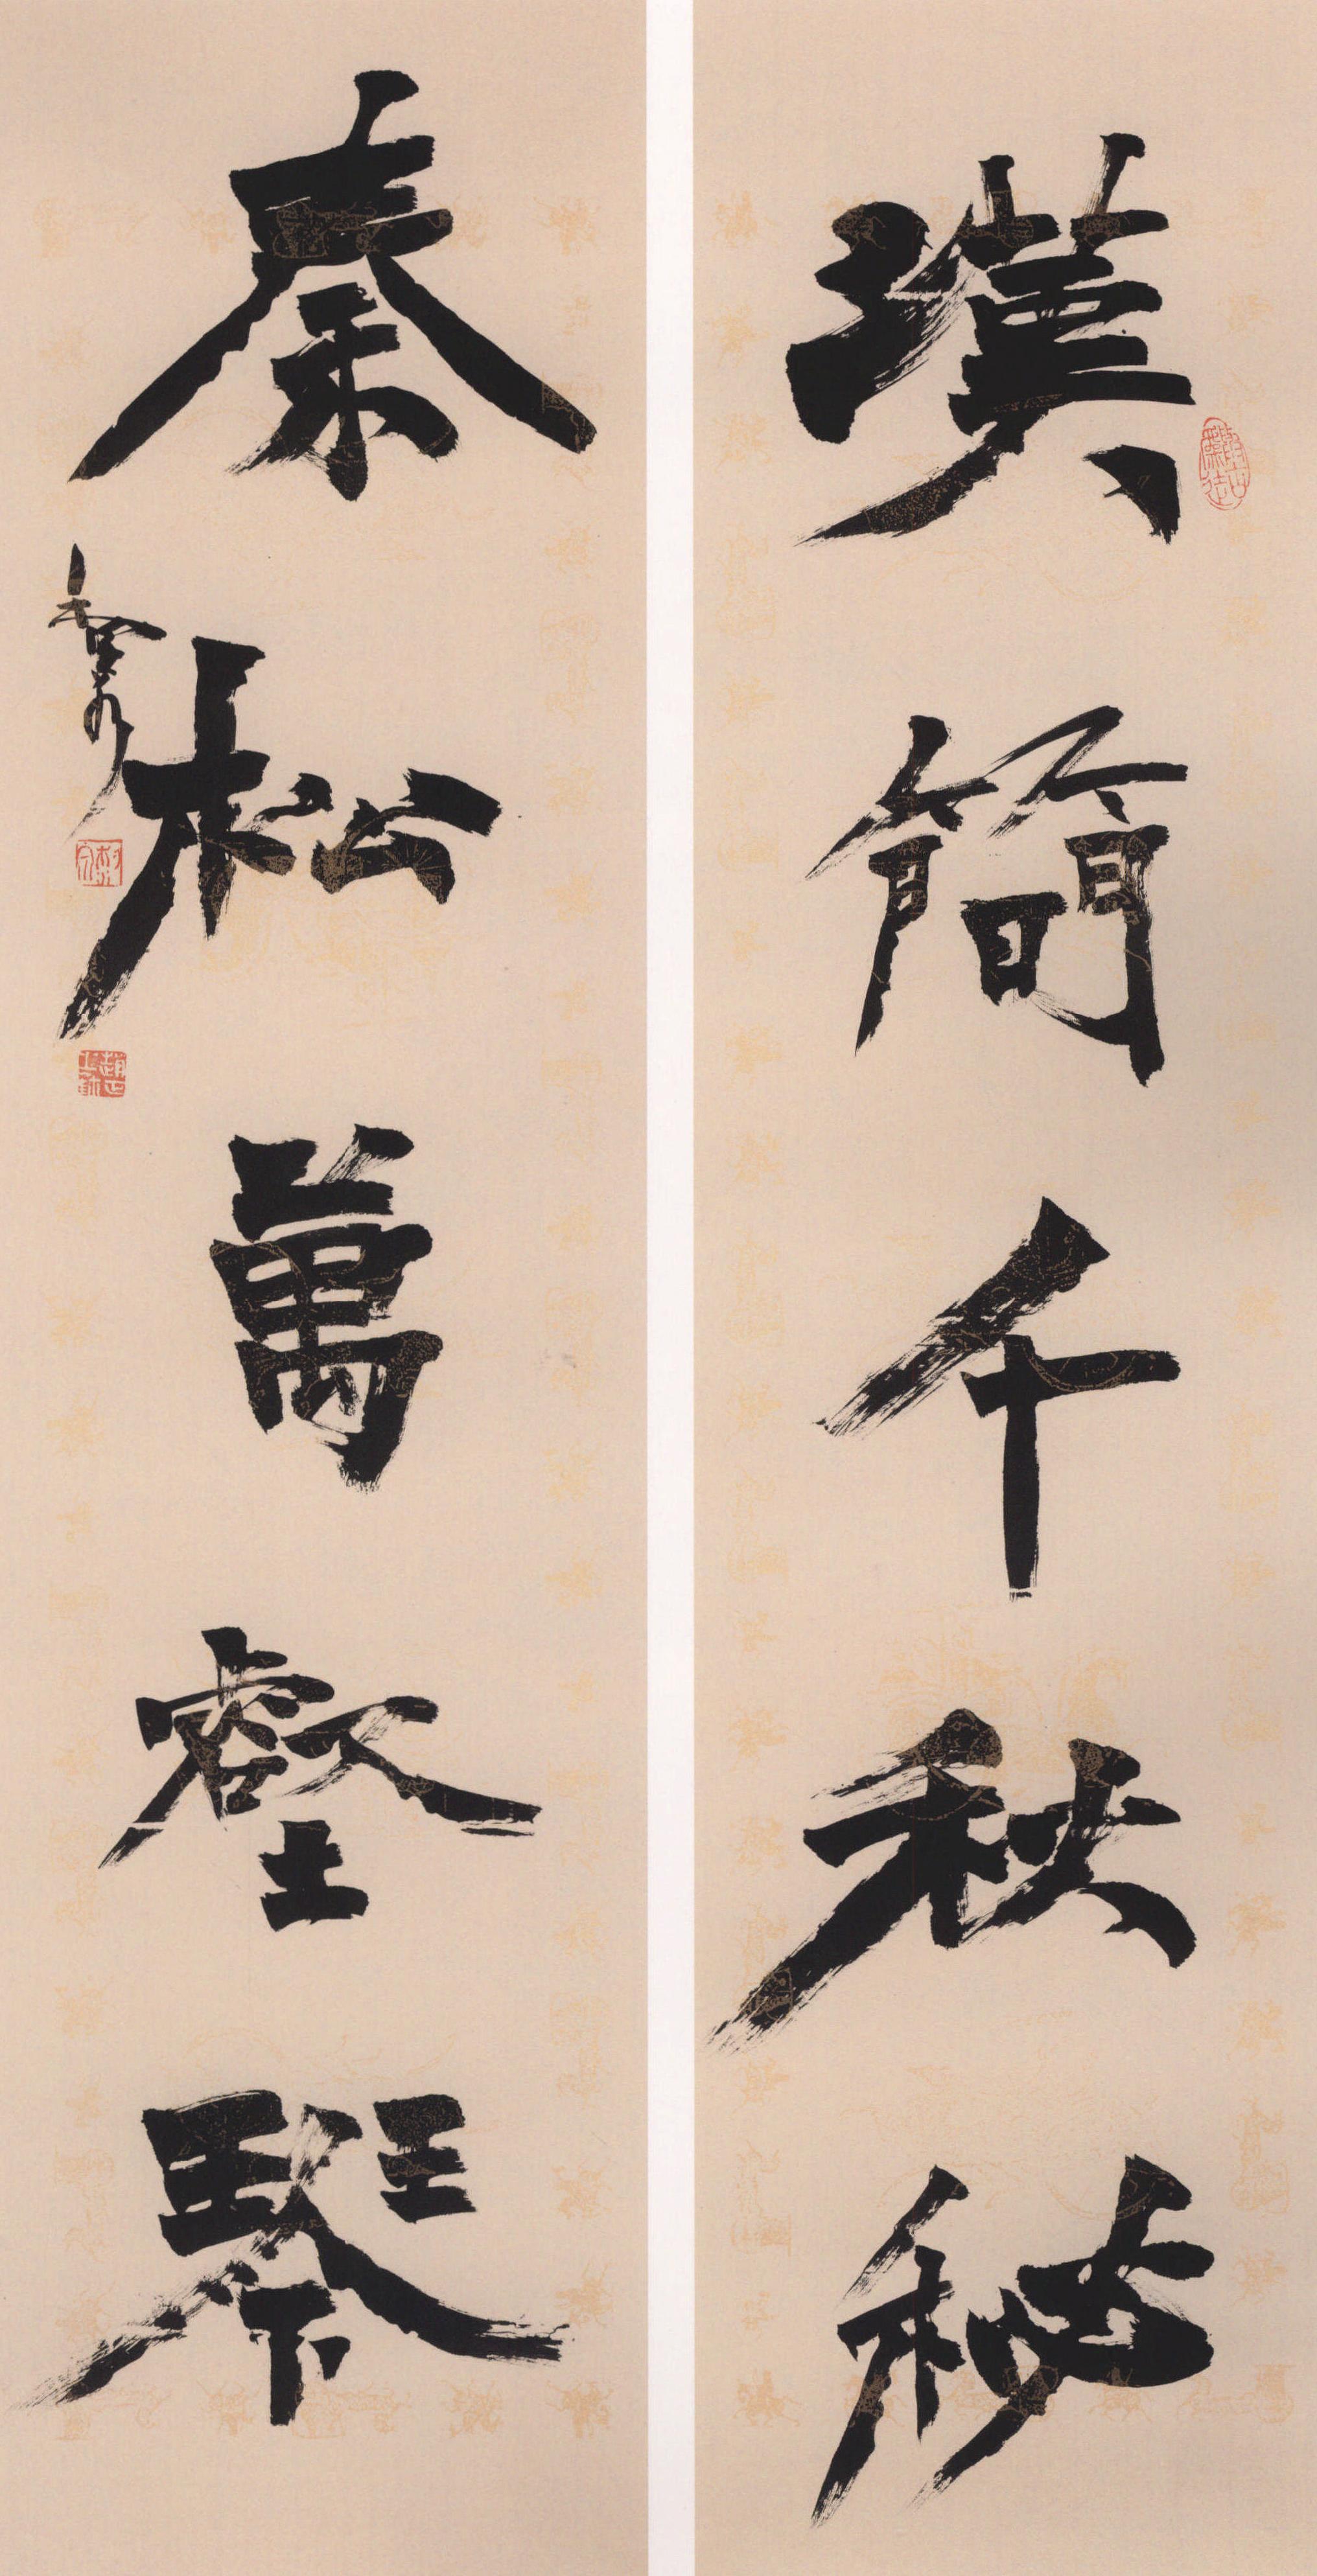 漢簡千秋秘
秦松萬壑琴